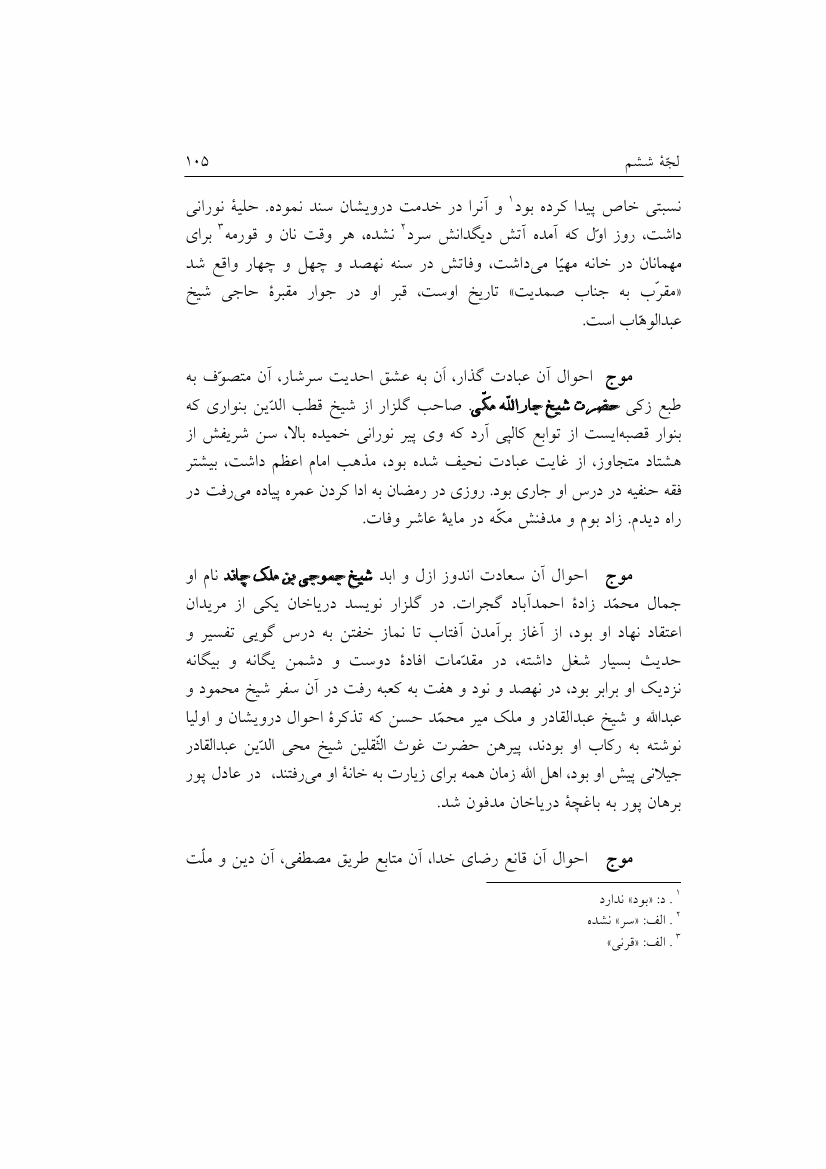 لجّهٔ ششم ۱۰۵
نسبتی خاص پیدا کرده بود۱ و آنرا در خدمت درویشان سند نموده. حلیهٔ نورانی
داشت، روز اوّل که آمده آتش دیگدانش سرد۲ نشده، هر وقت نان و قورمه۳ برای
مهمانان در خانه مهیّا می‌داشت، وفاتش در سنه نهصد و چهل و چهار واقع شد
«مقرّب به جناب صمدیت» تاریخ اوست، قبر او در جوار مقبرهٔ حاجی شیخ
عبدالوهّاب است.
موج احوال آن عبادت گذار، آن به عشق احدیت سرشار، آن متصوّف به
طبع زکی حضرت شیخ جارالله مکّی. صاحب گلزار از شیخ قطب الدّین بنواری که
بنوار قصبه‌ایست از توابع کالپی آرد که وی پیر نورانی خمیده بالا، سن شریفش از
هشتاد متجاوز، از غایت عبادت نحیف شده بود، مذهب امام اعظم داشت، بیشتر
فقه حنفیه در درس او جاری بود. روزی در رمضان به ادا کردن عمره پیاده می‌رفت در
راه دیدم. زاد بوم و مدفنش مکّه در مایهٔ عاشر وفات.
موج احوال آن سعادت اندوز ازل و ابد شیخ جموجی بن ملک چاند نام او
جمال محمّد زادهٔ احمدآباد گجرات. در گلزار نویسد دریاخان یکی از مریدان
اعتقاد نهاد او بود، از آغاز برآمدن آفتاب تا نماز خفتن به درس گویی تفسیر و
حدیث بسیار شغل داشته، در مقدّمات افادهٔ دوست و دشمن یگانه و بیگانه
نزدیک او برابر بود، در نهصد و نود و هفت به کعبه رفت در آن سفر شیخ محمود و
عبدالله و شیخ عبدالقادر و ملک میر محمّد حسن که تذکرهٔ احوال درویشان و اولیا
نوشته به رکاب او بودند، پیرهن حضرت غوث الثّقلین شیخ محی الدّین عبدالقادر
جیلانی پیش او بود، اهل الله زمان همه برای زیارت به خانهٔ او می‌رفتند، در عادل پور
برهان پور به باغچهٔ دریاخان مدفون شد.
موج احوال آن قانع رضای خدا، آن متابع طریق مصطفی، آن دین و ملّت
۱. د: «بود» ندارد
۲. الف: «سر» نشده
۳. الف: «قرنی»